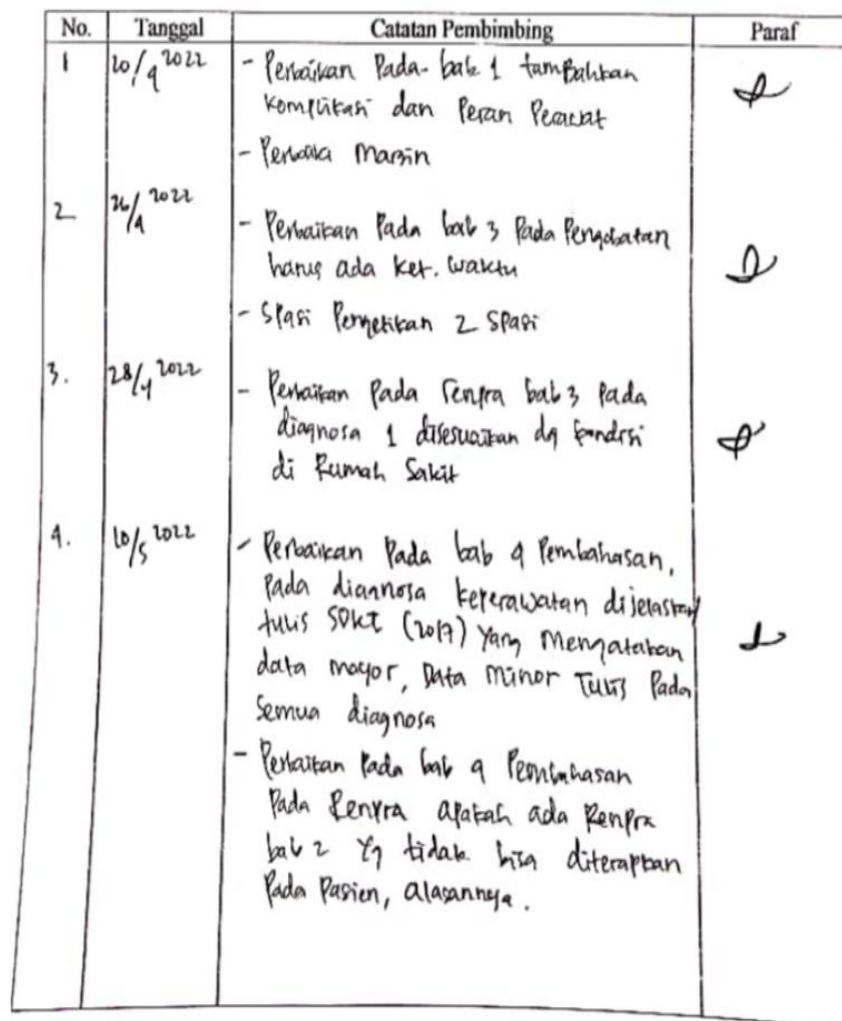 No. Tanggal Catatan Pembimbing Paraf
1 20/4 2022 - Perbaikan Pada bab 1 tambahkan
komplikasi dan Peran Perawat
- Perbaiki Margin
2 26/4 2022 - Perbaikan Pada bab 3 Pada Pengobatan
harus ada ket. waktu
- Spasi Pengetikan 2 Spasi
3. 28/4 2022 - Perbaikan Pada renpra bab 3 Pada
diagnosa 1 disesuaikan dg kondisi
di Rumah Sakit
4. 10/5 2022 - Perbaikan Pada bab 4 Pembahasan,
Pada diagnosa keperawatan dijelaskan
tulis SDKI (2017) Yang Mengatakan
data mayor, Data Minor Tulis Pada
Semua diagnosa
- Perbaikan Pada bab 4 Pembahasan
Pada Renpra apakah ada Renpra
bab 2 Yg tidak bisa diterapkan
Pada Pasien, alasannya.